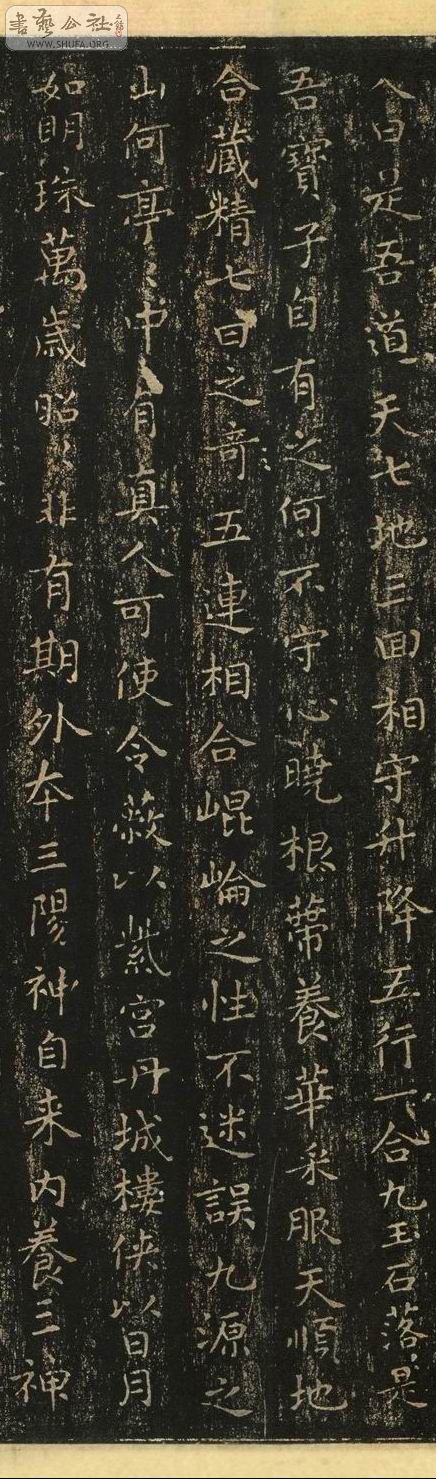 書藝公社
WWW.SHUFA.ORG
入曰是吾道天七地三回相守升降五行一合九玉石落〻是
吾寶子自有之何不守心曉根蔕養華采服天順地
合藏精七日之奇五連相合崐崘之性不迷誤九源之
山何亭〻中有真人可使令蔽以紫宮丹城樓俠以日月
如明珠萬歲昭〻非有期外本三陽神自来内養三神